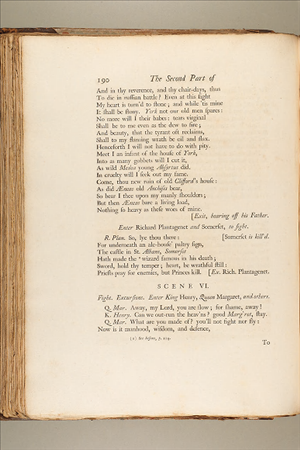 190 The Second Part of
And in thy reverence, and thy chair-days, thus
To die in ruffian battle? Even at this sight
My heart is turn'd to stone; and while 'tis mine
It shall be stony. York not our old men spares:
No more will I their babes: tears virginal
Shall be to me even as the dew to fire;
And beauty, that the tyrant oft reclaims,
Shall to my flaming wrath be oil and flax.
Henceforth I will not have to do with pity.
Meet I an infant of the house of York,
Into as many gobbets will I cut it,
As wild Medea young Absyrtus did.
In cruelty will I seek out my fame.
Come, thou new ruin of old Clifford's house:
As did Æneas old Anchises bear,
So bear I thee upon my manly shoulders;
But then Æneas bare a living load,
Nothing so heavy as these woes of mine.
[Exit, bearing off his Father.
Enter Richard Plantagenet and Somerset, to fight.
R. Plan. So, lye thou there: [Somerset is kill'd.
For underneath an ale-house' paltry sign,
The castle in St. Albans, Somerset
Hath made the wizard famous in his death;
Sword, hold thy temper; heart, be wrathful still:
Priests pray for enemies, but Princes kill. [Ex. Rich. Plantagenet.
SCENE VI.
Fight. Excursions. Enter King Henry, Queen Margaret, and others.
Q. Mar. Away, my Lord, you are slow; for shame, away!
K. Henry. Can we out-run the heav'ns? good Marg'ret, stay.
Q. Mar. What are you made of? you'll not fight nor fly:
Now is it manhood, wisdom, and defence,
See before, p.
To